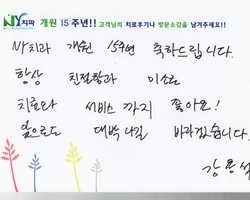 NY치과 개원 15주년!! 고객님의 치료후기나 방문소감을 남겨주세요!!
NY치과 개원 15주년 축하드립니다.
항상 친절함과 미소로
치료와 서비스 까지 좋아요!
앞으로도 대박 나길 바라겠습니다.
강용석